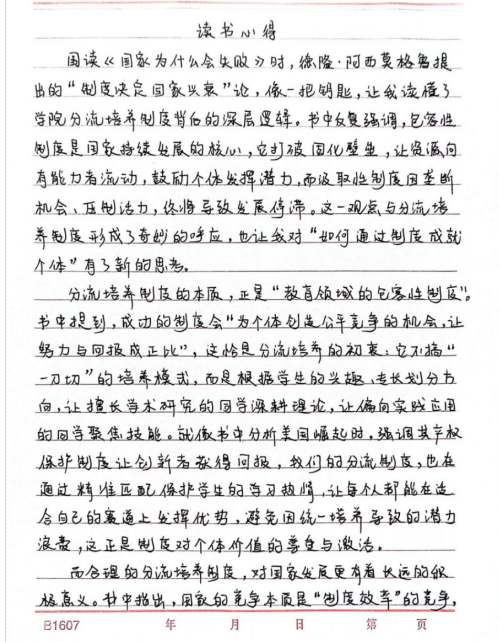 读书心得
因读《国家为什么会失败》时，德隆·阿西莫格鲁提
出的“制度决定国家兴衰”论，像一把钥匙，让我读懂了
学院分流培养制度背后的深层逻辑。书中反复强调，包容性
制度是国家持续发展的核心，它打破固化壁垒，让资源向
有能力者流动，鼓励个体发挥潜力，而汲取性制度因垄断
机会、压制活力，终将导致发展停滞。这一观点与分流培
养制度形成了奇妙的呼应，也让我对“如何通过制度成就
个体”有了新的思考。
分流培养制度的本质，正是“教育领域的包容性制度”。
书中提到，成功的制度会“为个体创造公平竞争的机会，让
努力与回报成正比”，这恰是分流培养的初衷：它不搞“
一刀切”的培养模式，而是根据学生的兴趣、专长划分方
向，让擅长学术研究的同学深耕理论，让偏向实践应用
的同学聚焦技能。就像书中分析美国崛起时，强调其产权
保护制度让创新者获得回报，我们的分流制度，也在
通过精准匹配保护学生的学习热情，让每个人都能在适
合自己的赛道上发挥优势，避免因统一培养导致的潜力
浪费，这正是制度对个体价值的尊重与激活。
而合理的分流培养制度，对国家发展更有着长远的积
极意义。书中指出，国家的竞争本质是“制度效率”的竞争，
B1607 年 月 日 第 页